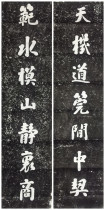 天機道筦閒中契
範水模山靜裏商